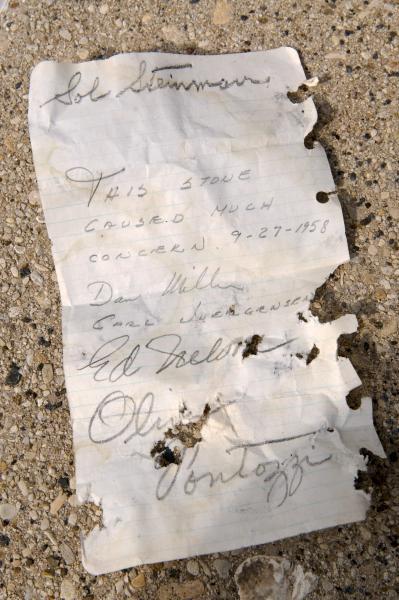 Sol Steinman
THIS STONE
CAUSED MUCH
CONCERN. 9-27-1958
Dan Miller
CARL JUERGENSEN
Ed
Pontozzi